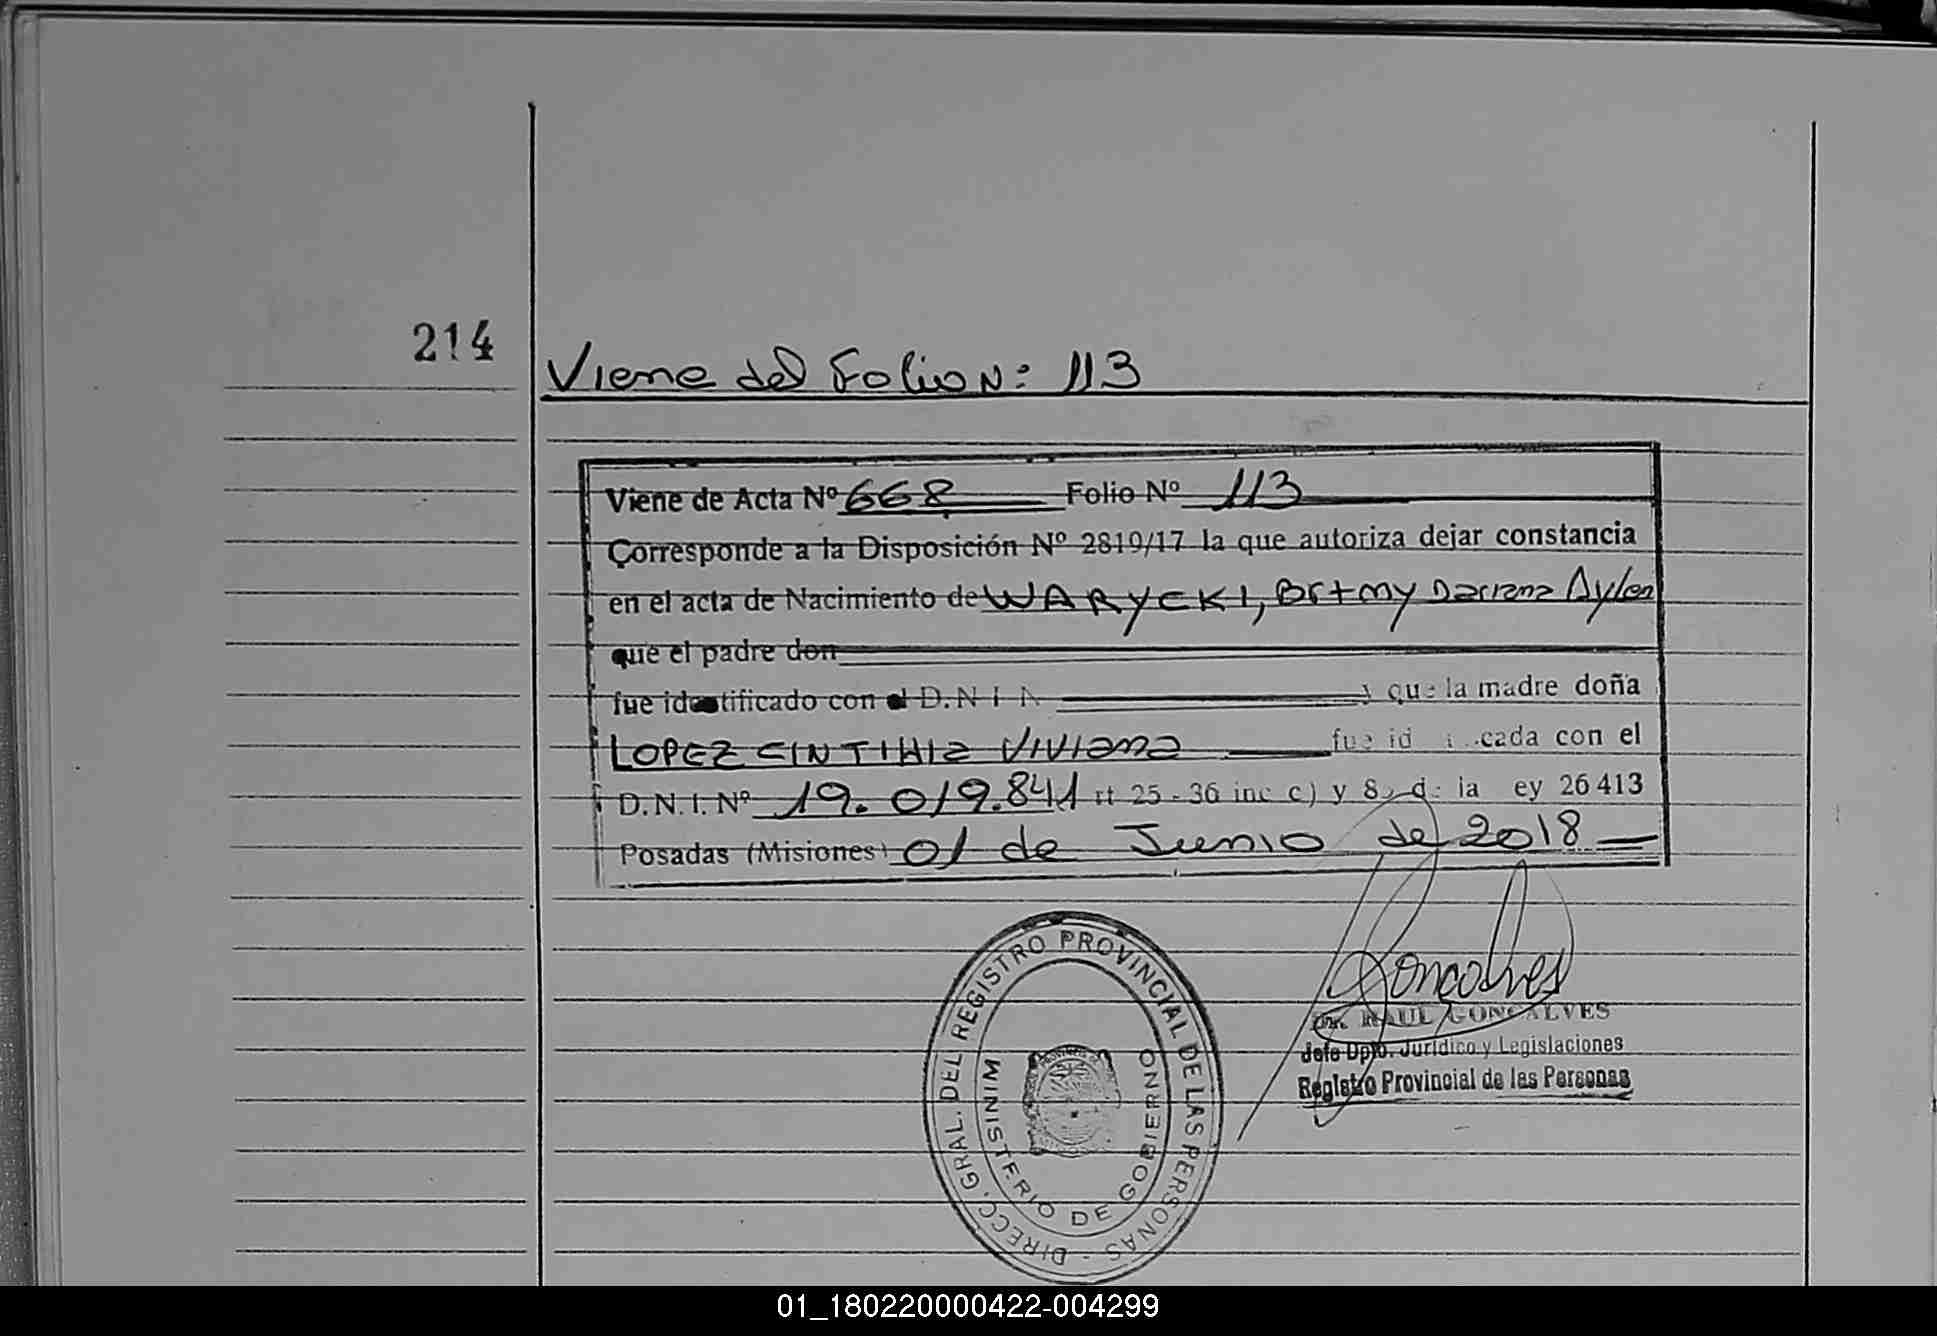 214
Viene del Folio N: 113
Viene de Acta Nº 668 Folio Nº 113
Corresponde a la Disposición Nº 2819/17 la que autoriza dejar constancia
en el acta de Nacimiento de WARYCKI, Aylen
que el padre don
fue identificado con el D.N.I. N y que la madre doña
LOPEZ CINTIHIA VIVIANA fue id cada con el
D.N.I. Nº 19.019.841 rt 25 - 36 inc c) y 8 de la ey 26 413
Posadas (Misiones) 01 de Junio de 2018
DIRECC. GRAL. DEL REGISTRO PROVINCIAL DE LAS PERSONAS -
MINISTERIO DE GOBIERNO
Goncalves
Dr. RAUL GONCALVES
Jefe Dpto. Jurídico y Legislaciones
Registro Provincial de las Personas
01_180220000422-004299